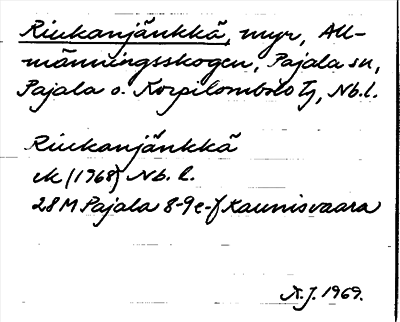 Riukanjänkkä, myr, All-
männingsskogen, Pajala sn,
Pajala o. Korpilombolo tg, Nb.l.
Riukanjänkkä
ek (1968) Nb. l.
28M Pajala 8-9e-f Kaunisvaara
A.J. 1969.